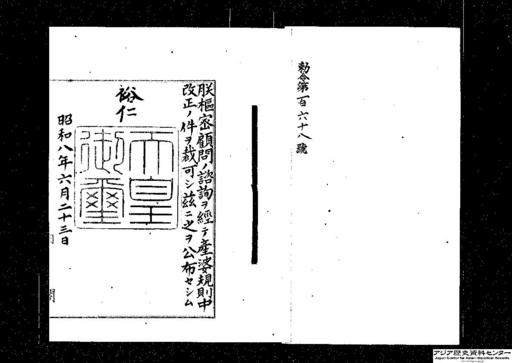 勅令第百六十八號
朕樞密顧問ノ諮詢ヲ經テ產婆規則中
改正ノ件ヲ裁可シ茲ニ之ヲ公布セシム
裕仁
天皇
御璽
昭和八年六月二十三日
アジア歴史資料センター
Japan Center for Asian Historical Records